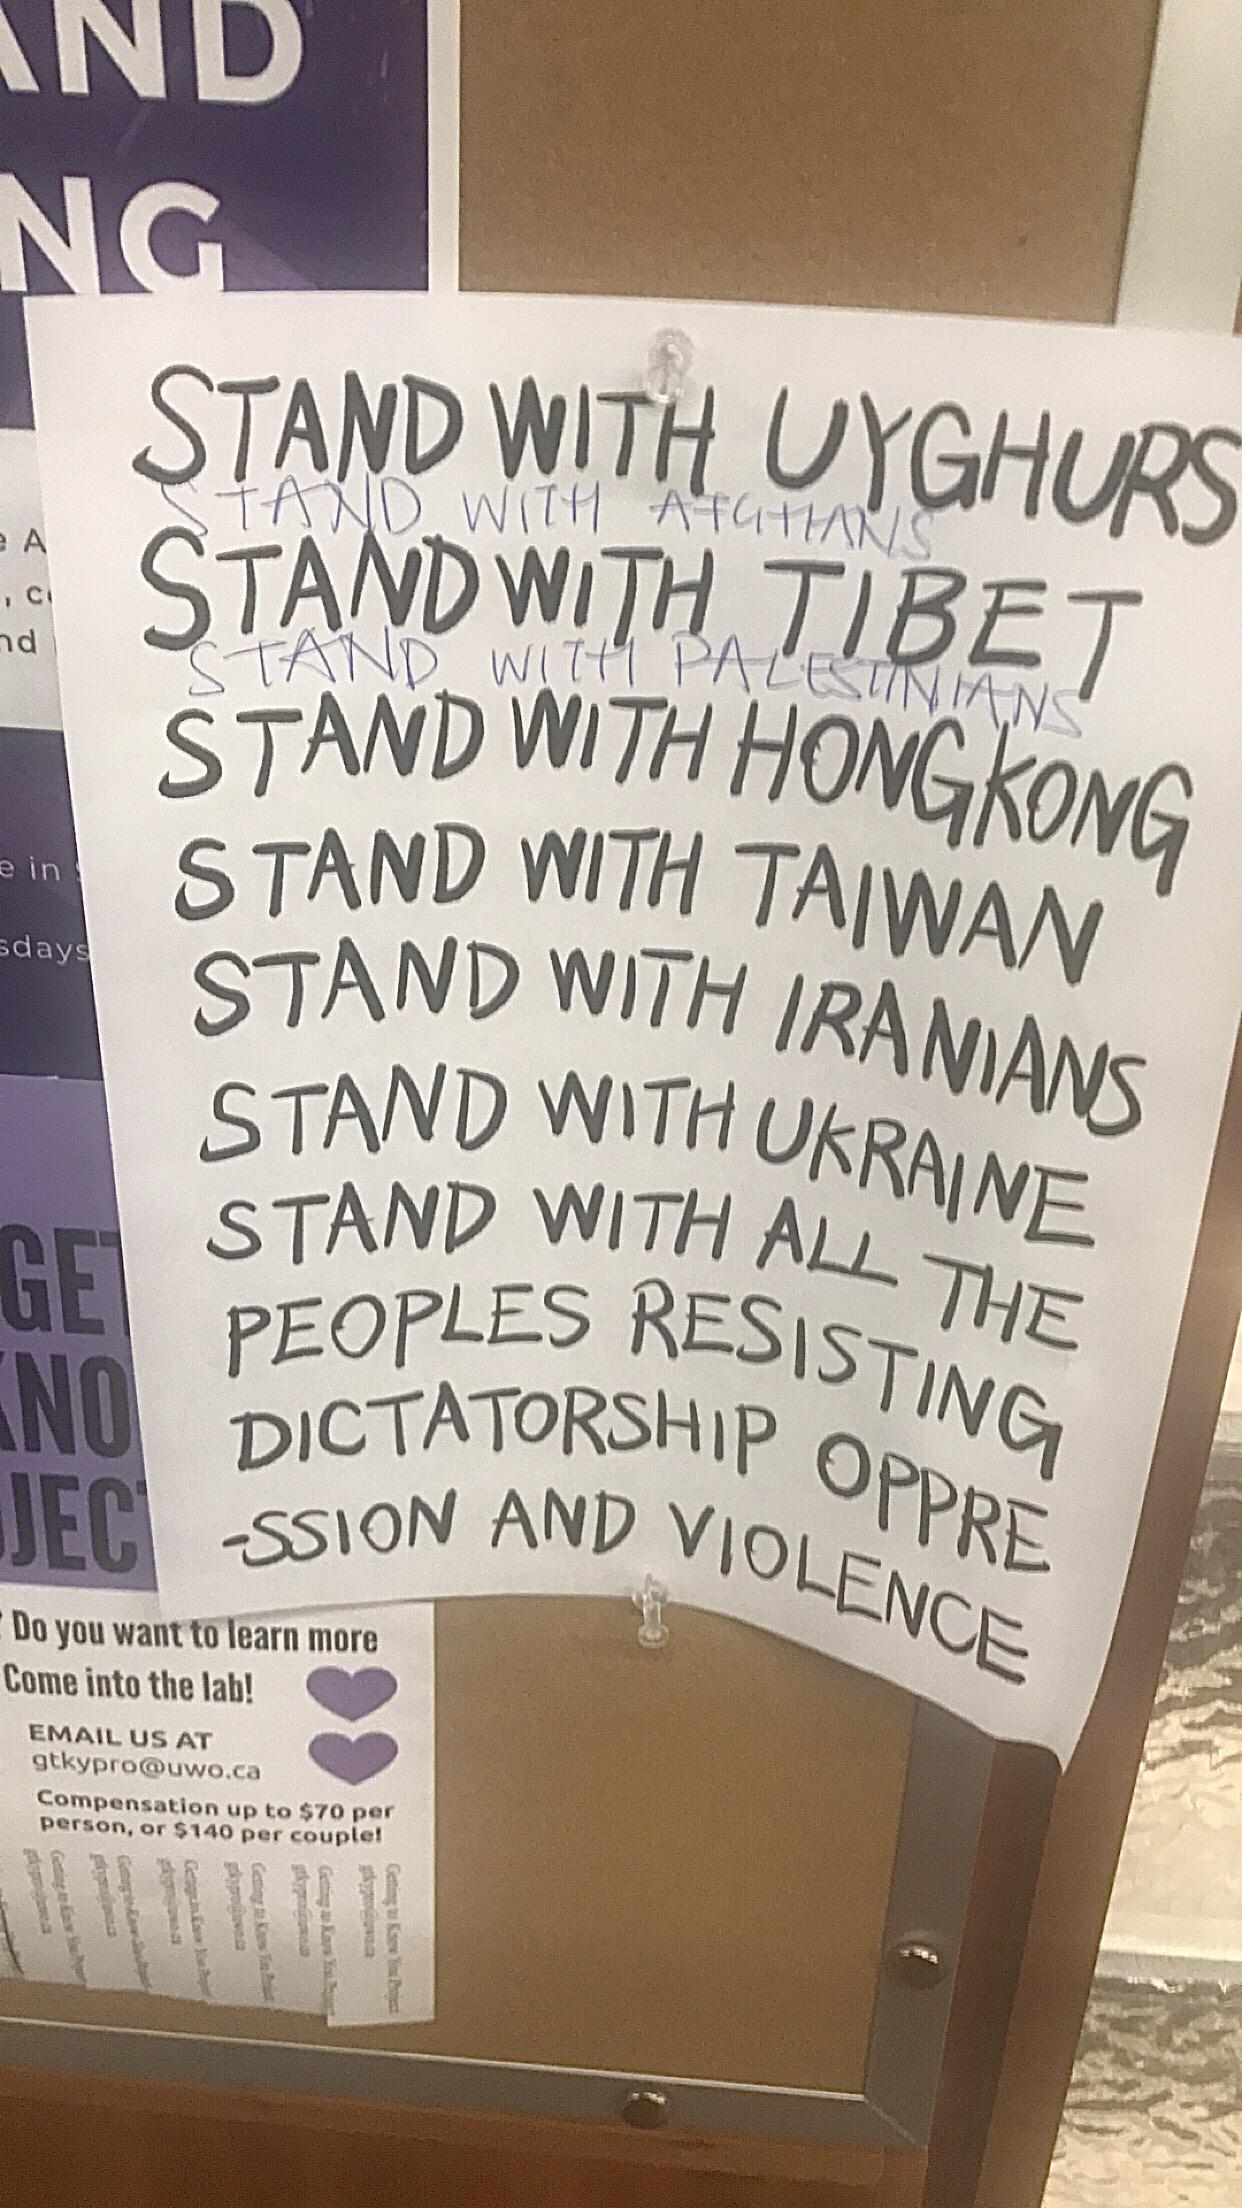 AND
NG
STAND WITH UYGHURS
STAND WITH AFGHANS
STAND WITH TIBET
STAND WITH PALESTINIANS
STAND WITH HONGKONG
STAND WITH TAIWAN
STAND WITH IRANIANS
STAND WITH UKRAINE
STAND WITH ALL THE
PEOPLES RESISTING
DICTATORSHIP OPPRE
-SSION AND VIOLENCE
e A
, c
nd
e in
sdays
GET
KNO
JECT
Do you want to learn more
Come into the lab!
EMAIL US AT
gtkypro@uwo.ca
Compensation up to $70 per
person, or $140 per couple!
Getting to Know You Project
gtkypro@uwo.ca
Getting to Know You Project
gtkypro@uwo.ca
Getting to Know You Project
gtkypro@uwo.ca
Getting to Know You Project
gtkypro@uwo.ca
Getting to Know You Project
gtkypro@uwo.ca
Getting to Know You Project
gtkypro@uwo.ca